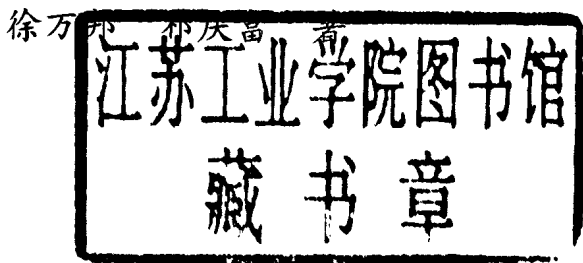 徐万邦 祁庆富 著
江苏工业学院图书馆
藏书章